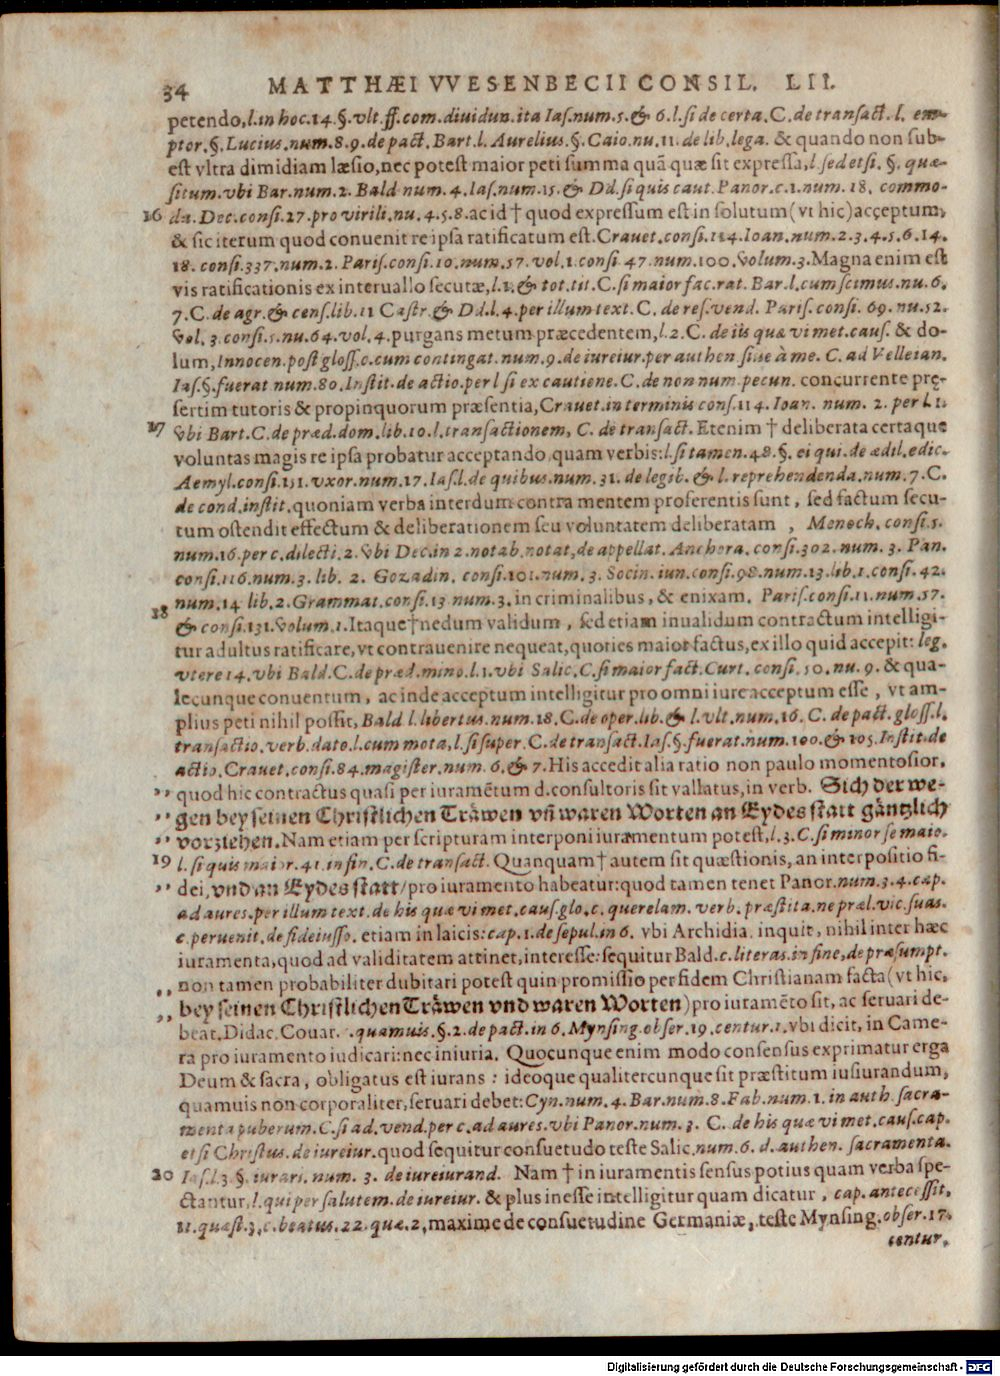 34 MATTHÆI VVESENBECII CONSIL. LII.
petendo, l. in hoc. 14. §. vlt. ff. com. diuidun. ita Ias. num. 5. & 6. l. si de certa. C. de transact. l. em-
ptor. §. Lucius. num. 8. 9. de pact. Bart. l. Aurelius. §. Caio. nu. 11. de lib. lega. & quando non sub-
est vltra dimidiam læsio, nec potest maior peti summa quã quæ sit expressa, l. sed et si. §. quæ-
situm. vbi Bar. num. 2. Bald num. 4. Ias. num. 15. & Dd. si quis caut. Panor. c. 1. num. 18. commo-
16 da. Dec. consi. 27. pro virili. nu. 4. 5. 8. ac id † quod expressum est in solutum (vt hic) acceptum,
& sic iterum quod conuenit re ipsa ratificatum est. Crauet. consi. 114. Ioan. num. 2. 3. 4. 5. 6. 14.
18. consi. 337. num. 2. Paris. consi. 10. num. 57. vol. 1. consi 47. num. 100. volum. 3. Magna enim est
vis ratificationis ex interuallo secutæ, l. 1. & tot. tit. C. si maior fac. rat. Bar. l. cum scimus. nu. 6.
7. C. de agr. & cens. lib. 11 Castr. & Dd. l. 4. per illum text. C. de res. vend. Paris. consi. 69. nu. 52.
vol. 3. consi. 5. nu. 64. vol. 4. purgans metum præcedentem, l. 2. C. de iis quæ vi met. caus. & do-
lum, Innocen. post gloss. c. cum contingat. num. 9. de iureiur. per authen. siue à me. C. ad Velleian.
Ias. §. fuerat num. 80. Instit. de actio. per l si ex cautiene. C. de non num. pecun. concurrente prę-
sertim tutoris & propinquorum præsentia, Crauet. in terminis cons. 114. Ioan. num. 2. per l. 1.
17 vbi Bart. C. de præd. dom. lib. 10. l. transactionem, C. de transact. Etenim † deliberata certaque
voluntas magis re ipsa probatur acceptando, quam verbis: l. si tamen. 48. §. ei qui. de ædil. edic.
Aemyl. consi. 151. vxor. num. 17. Ias. l. de quibus. num. 31. de legib. & l. reprehendenda. num. 7. C.
de cond. instit. quoniam verba interdum contra mentem proferentis sunt, sed factum secu-
tum ostendit effectum & deliberationem seu voluntatem deliberatam, Menoch. consi. 5.
num. 16. per c. dilecti. 2. vbi Dec. in 2. notab. notat, de appellat. Anchora. consi. 302. num. 3. Pan.
consi. 116. num. 3. lib. 2. Gozadin. consi. 101. num. 3. Socin. iun. consi. 98. num. 13. lib. 1. consi. 42.
num. 14 lib. 2. Grammat. consi. 13 num. 3. in criminalibus, & enixam. Paris. consi. 11. num. 57.
18 & consi. 131. volum. 1. Itaque † nedum validum, sed etiam inualidum contractum intelligi-
tur adultus ratificare, vt contrauenire nequeat, quoties maior factus, ex illo quid accepit: leg.
vtere 14. vbi Bald. C. de præd. mino. l. 1. vbi Salic. C. si maior fact. Curt. consi. 50. nu. 9. & qua-
lecunque conuentum, ac inde acceptum intelligitur pro omni iure acceptum esse, vt am-
plius peti nihil possit, Bald l. libertus. num. 18. C. de oper. lib. & l. vlt. num. 16. C. de pact. gloss. l.
transactio. verb. dato. l. cum mota, l. si super. C. de transact. Ias. §. fuerat. num. 100. & 105. Instit. de
actio. Crauet. consi. 84. magister. num. 6. & 7. His accedit alia ratio non paulo momentosior.
,, quod hic contractus quasi per iuramẽtum d. consultoris sit vallatus, in verb. Sich der we-
,, gen bey seinen Christlichen Träwen vñ waren Worten an Eydes statt gäntzlich
,, vorziehen. Nam etiam per scripturam interponi iuramentum potest, l. 3. C. si minor se maio.
19 l. si quis maior. 41. in fin. C. de transact. Quanquam † autem sit quæstionis, an interpositio fi-
,, dei, vnd an Eydes statt/ pro iuramento habeatur: quod tamen tenet Panor. num. 3. 4. cap.
ad aures. per illum text. de his quæ vi met. caus. glo. c. querelam. verb. præstita. ne præl. vic. suas.
c. peruenit. de fideiusso. etiam in laicis: cap. 1. de sepul. in 6. vbi Archidia. inquit, nihil inter hæc
iuramenta, quod ad validitatem attinet, interesse: sequitur Bald. c. literas. in fine, de præsumpt.
non tamen probabiliter dubitari potest quin promissio per fidem Christianam facta (vt hic,
,, bey seinen Christlichen Träwen vnd waren Worten) pro iuramẽto sit, ac seruari de-
,, beat. Didac. Couar. . quamuis. §. 2. de pact. in 6. Mynsing. obser. 19. centur. 1. vbi dicit, in Came-
ra pro iuramento iudicari: nec iniuria. Quocunque enim modo consensus exprimatur erga
Deum & sacra, obligatus est iurans: ideoque qualitercunque sit præstitum iusiurandum,
quamuis non corporaliter, seruari debet: Cyn. num. 4. Bar. num. 8. Fab. num. 1. in auth. sacra-
menta puberum. C. si ad. vend. per c. ad aures. vbi Panor. num. 3. C. de his quæ vi met. caus. cap.
et si Christus. de iureiur. quod sequitur consuetudo teste Salic. num. 6. d. authen. sacramenta.
20 Ias. l. 3. §. iurari. num. 3. de iureiurand. Nam † in iuramentis sensus potius quam verba spe-
ctantur, l. qui per salutem. de iureiur. & plus inesse intelligitur quam dicatur, cap. antecessit,
11. quæst. 3, c. beatus. 22. quæ. 2, maxime de consuetudine Germaniæ, teste Mynsing. obser. 17.
centur.
Digitalisierung gefördert durch die Deutsche Forschungsgemeinschaft - DFG